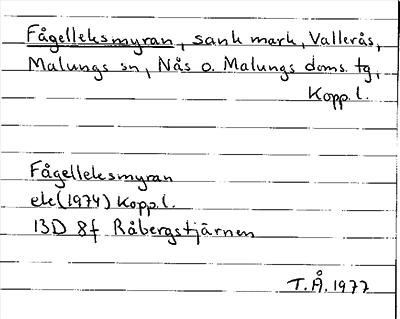 Fågelleksmyran, sank mark, Vallerås,
Malungs sn, Nås o. Malungs doms. tg,
Kopp. l.
Fågelleksmyran
ek (1974) Kopp. l.
13D 8f Råbergstjärnen
T.Å. 1977